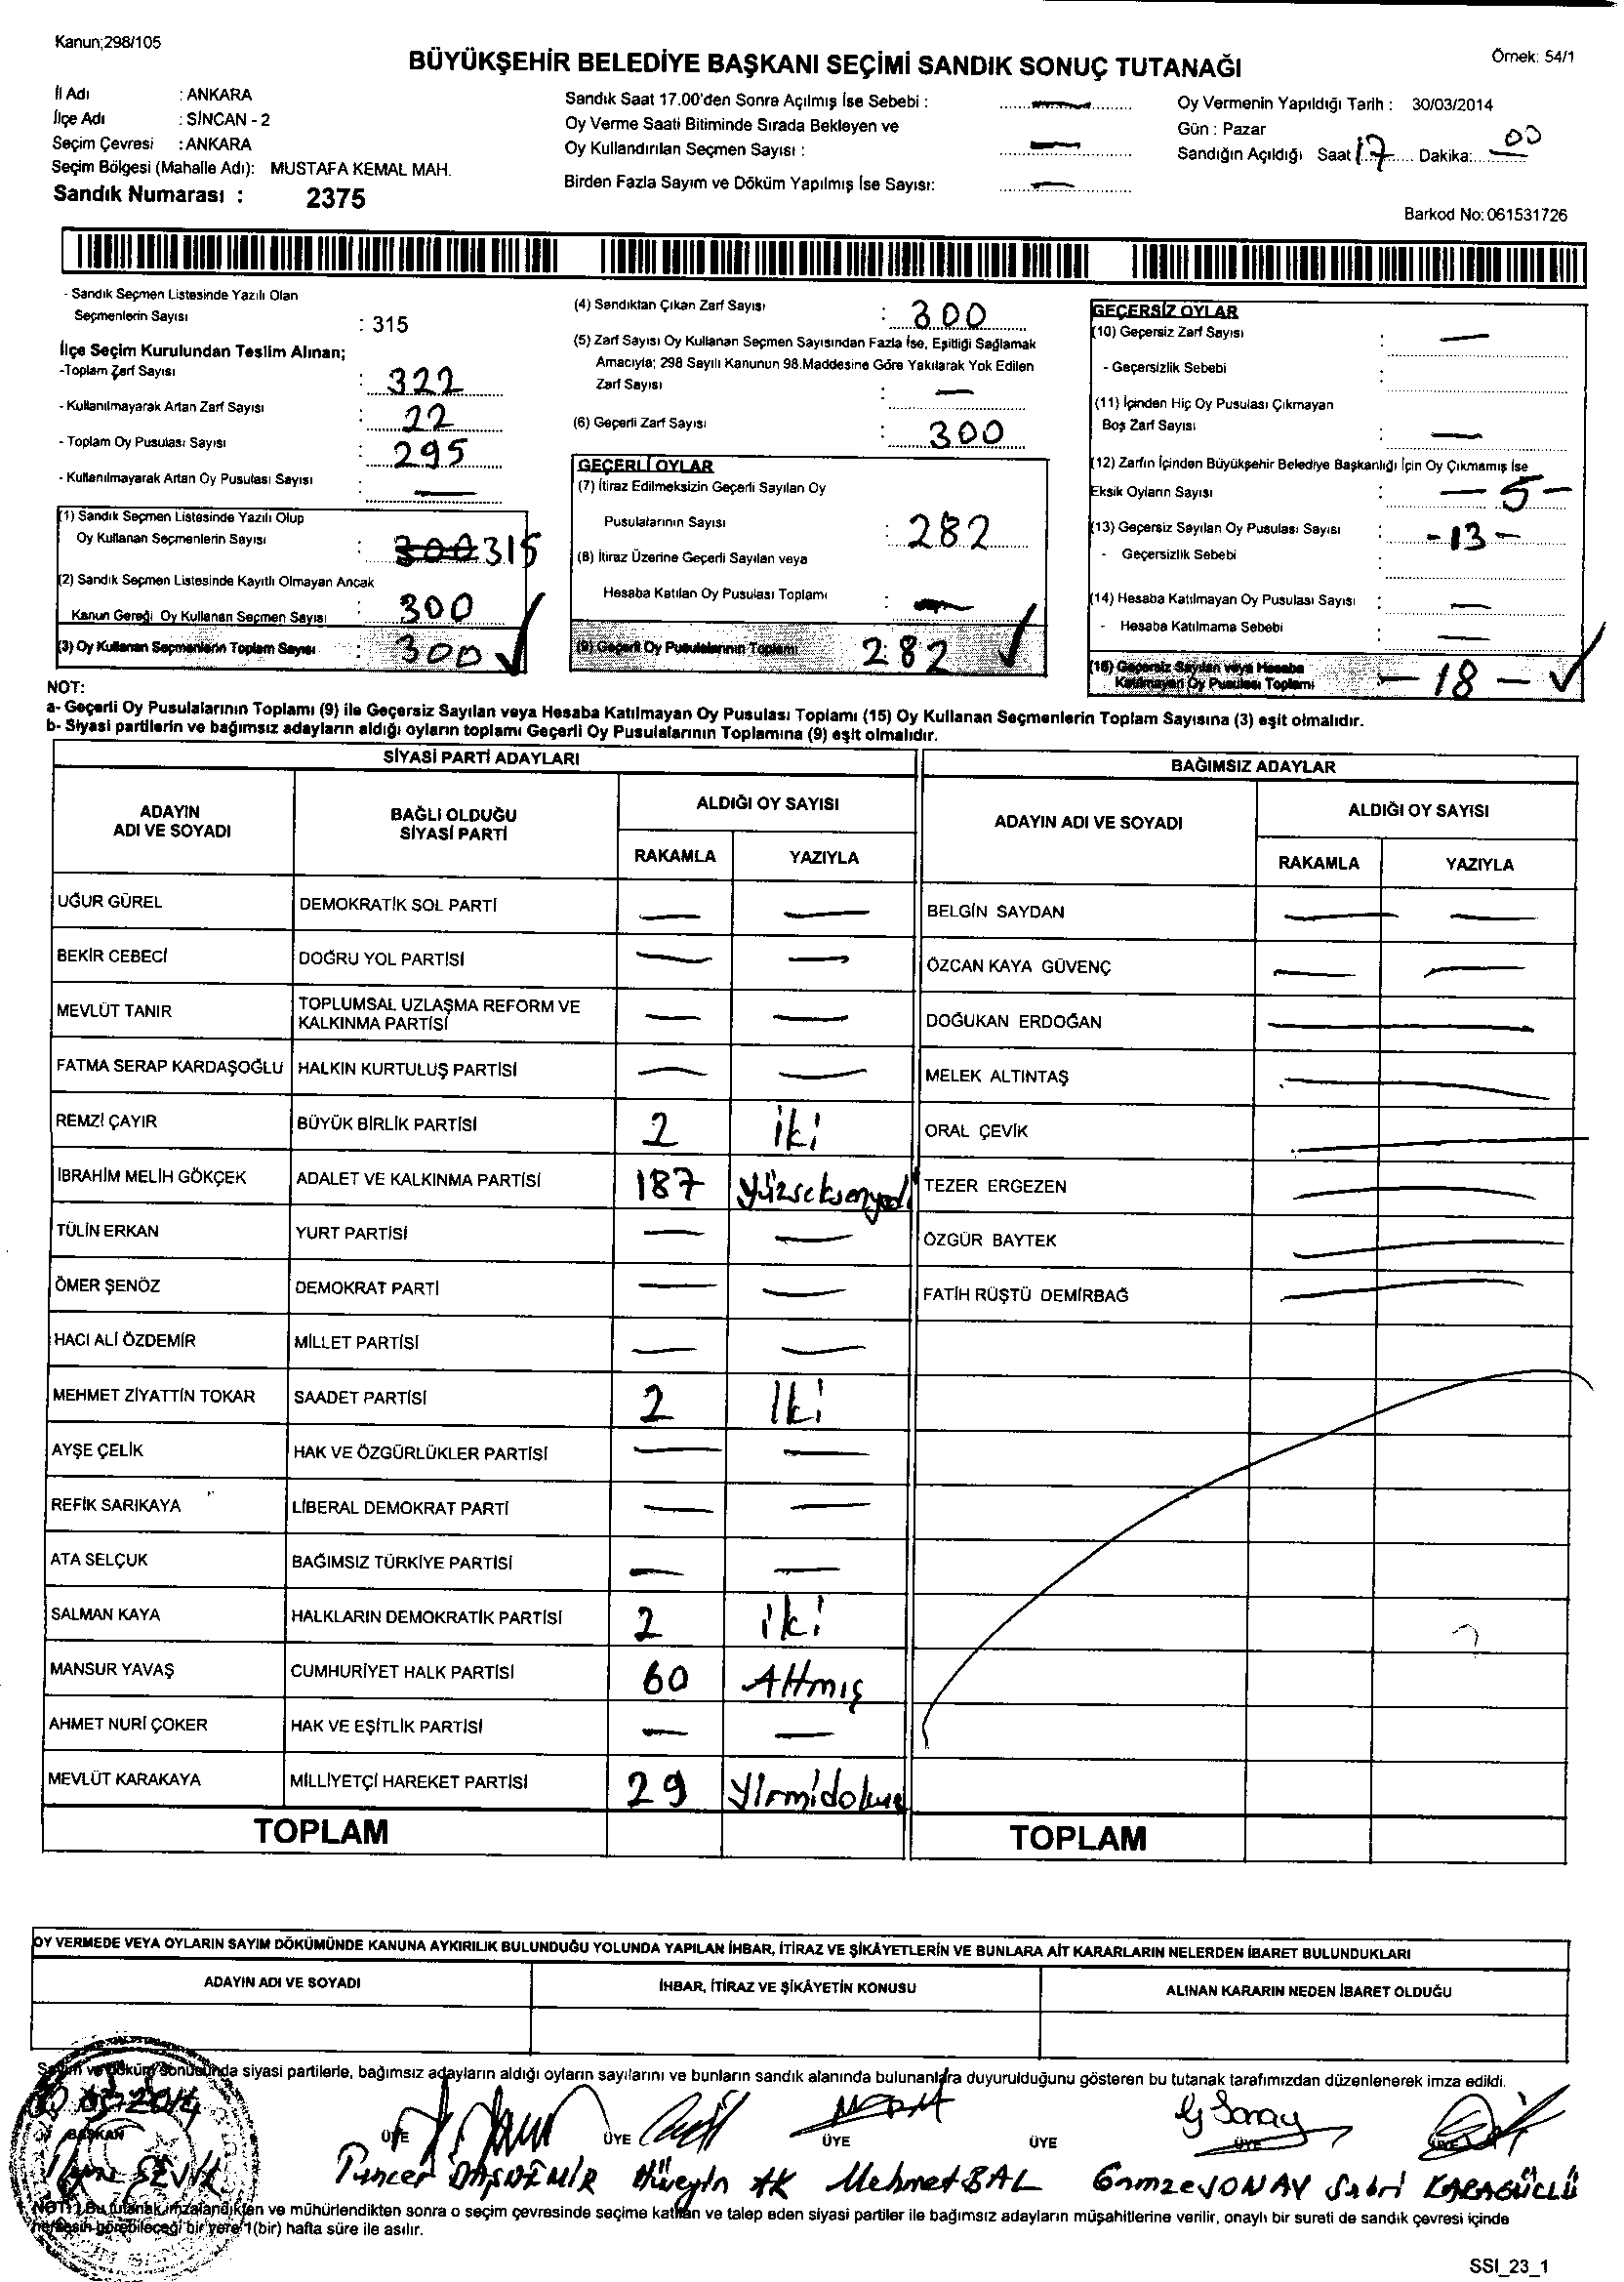 Kanun;298/105
BÜYÜKŞEHİR BELEDİYE BAŞKANI SEÇİMİ SANDIK SONUÇ TUTANAĞI
Örnek: 54/1
İl Adı : ANKARA
İlçe Adı : SİNCAN - 2
Seçim Çevresi : ANKARA
Seçim Bölgesi (Mahalle Adı): MUSTAFA KEMAL MAH.
Sandık Numarası : 2375
Sandık Saat 17.00'den Sonra Açılmış İse Sebebi : —
Oy Verme Saati Bitiminde Sırada Bekleyen ve
Oy Kullandırılan Seçmen Sayısı : —
Birden Fazla Sayım ve Döküm Yapılmış İse Sayısı: —
Oy Vermenin Yapıldığı Tarih : 30/03/2014
Gün : Pazar
Sandığın Açıldığı Saat 17 Dakika: 00
Barkod No: 061531726
- Sandık Seçmen Listesinde Yazılı Olan
Seçmenlerin Sayısı : 315
İlçe Seçim Kurulundan Teslim Alınan;
-Toplam Zarf Sayısı : 322
- Kullanılmayarak Artan Zarf Sayısı : 22
- Toplam Oy Pusulası Sayısı : 295
- Kullanılmayarak Artan Oy Pusulası Sayısı : —
(1) Sandık Seçmen Listesinde Yazılı Olup
Oy Kullanan Seçmenlerin Sayısı : 300 315
(2) Sandık Seçmen Listesinde Kayıtlı Olmayan Ancak
Kanun Gereği Oy Kullanan Seçmen Sayısı : 300
(3) Oy Kullanan Seçmenlerin Toplam Sayısı : 300 ✓
(4) Sandıktan Çıkan Zarf Sayısı : 300
(5) Zarf Sayısı Oy Kullanan Seçmen Sayısından Fazla İse, Eşitliği Sağlamak
Amacıyla; 298 Sayılı Kanunun 98.Maddesine Göre Yakılarak Yok Edilen
Zarf Sayısı : —
(6) Geçerli Zarf Sayısı : 300
GEÇERLİ OYLAR
(7) İtiraz Edilmeksizin Geçerli Sayılan Oy
Pusulalarının Sayısı : 282
(8) İtiraz Üzerine Geçerli Sayılan veya
Hesaba Katılan Oy Pusulası Toplamı : —
(9) Geçerli Oy Pusulalarının Toplamı: 282 ✓
GEÇERSİZ OYLAR
(10) Geçersiz Zarf Sayısı : —
- Geçersizlik Sebebi :
(11) İçinden Hiç Oy Pusulası Çıkmayan
Boş Zarf Sayısı : —
(12) Zarfın İçinden Büyükşehir Belediye Başkanlığı İçin Oy Çıkmamış İse
Eksik Oyların Sayısı : — 5 —
(13) Geçersiz Sayılan Oy Pusulası Sayısı : - 13 -
- Geçersizlik Sebebi
(14) Hesaba Katılmayan Oy Pusulası Sayısı : —
- Hesaba Katılmama Sebebi : —
(15) Geçersiz Sayılan veya Hesaba
Katılmayan Oy Pusulası Toplamı — 18 — ✓
NOT:
a- Geçerli Oy Pusulalarının Toplamı (9) ile Geçersiz Sayılan veya Hesaba Katılmayan Oy Pusulası Toplamı (15) Oy Kullanan Seçmenlerin Toplam Sayısına (3) eşit olmalıdır.
b- Siyasi partilerin ve bağımsız adayların aldığı oyların toplamı Geçerli Oy Pusulalarının Toplamına (9) eşit olmalıdır.
SİYASİ PARTİ ADAYLARI
ADAYIN ADI VE SOYADI
BAĞLI OLDUĞU SİYASİ PARTİ
ALDIĞI OY SAYISI
RAKAMLA YAZIYLA
UĞUR GÜREL DEMOKRATİK SOL PARTİ — —
BEKİR CEBECİ DOĞRU YOL PARTİSİ — —
MEVLÜT TANIR TOPLUMSAL UZLAŞMA REFORM VE KALKINMA PARTİSİ — —
FATMA SERAP KARDAŞOĞLU HALKIN KURTULUŞ PARTİSİ — —
REMZİ ÇAYIR BÜYÜK BİRLİK PARTİSİ 2 iki
İBRAHİM MELİH GÖKÇEK ADALET VE KALKINMA PARTİSİ 187 yüzseksenyedi
TÜLİN ERKAN YURT PARTİSİ — —
ÖMER ŞENÖZ DEMOKRAT PARTİ — —
HACI ALİ ÖZDEMİR MİLLET PARTİSİ — —
MEHMET ZİYATTİN TOKAR SAADET PARTİSİ 2 Iki
AYŞE ÇELİK HAK VE ÖZGÜRLÜKLER PARTİSİ — —
REFİK SARIKAYA LİBERAL DEMOKRAT PARTİ — —
ATA SELÇUK BAĞIMSIZ TÜRKİYE PARTİSİ — —
SALMAN KAYA HALKLARIN DEMOKRATİK PARTİSİ 2 iki
MANSUR YAVAŞ CUMHURİYET HALK PARTİSİ 60 Altmış
AHMET NURİ ÇOKER HAK VE EŞİTLİK PARTİSİ — —
MEVLÜT KARAKAYA MİLLİYETÇİ HAREKET PARTİSİ 29 yirmidokuz
TOPLAM
BAĞIMSIZ ADAYLAR
ADAYIN ADI VE SOYADI
ALDIĞI OY SAYISI
RAKAMLA YAZIYLA
BELGİN SAYDAN — —
ÖZCAN KAYA GÜVENÇ — —
DOĞUKAN ERDOĞAN —
MELEK ALTINTAŞ —
ORAL ÇEVİK —
TEZER ERGEZEN —
ÖZGÜR BAYTEK —
FATİH RÜŞTÜ DEMİRBAĞ —
TOPLAM
OY VERMEDE VEYA OYLARIN SAYIM DÖKÜMÜNDE KANUNA AYKIRILIK BULUNDUĞU YOLUNDA YAPILAN İHBAR, İTİRAZ VE ŞİKÂYETLERİN VE BUNLARA AİT KARARLARIN NELERDEN İBARET BULUNDUKLARI
ADAYIN ADI VE SOYADI
İHBAR, İTİRAZ VE ŞİKÂYETİN KONUSU
ALINAN KARARIN NEDEN İBARET OLDUĞU
Sayım ve döküm sonucunda siyasi partilerle, bağımsız adayların aldığı oyların sayılarını ve bunların sandık alanında bulunanlara duyurulduğunu gösteren bu tutanak tarafımızdan düzenlenerek imza edildi.
BAŞKAN ÜYE ÜYE ÜYE ÜYE ÜYE ÜYE
Tuncer DAŞDEMİR Hüseyin AK Mehmet BAL Gamze SONAY Sabri KARAGÜLLÜ
NOT: Bu tutanak imzalandıktan ve mühürlendikten sonra o seçim çevresinde seçime katılan ve talep eden siyasi partiler ile bağımsız adayların müşahitlerine verilir, onaylı bir sureti de sandık çevresi içinde
herkesin görebileceği bir yere 1(bir) hafta süre ile asılır.
SSI_23_1